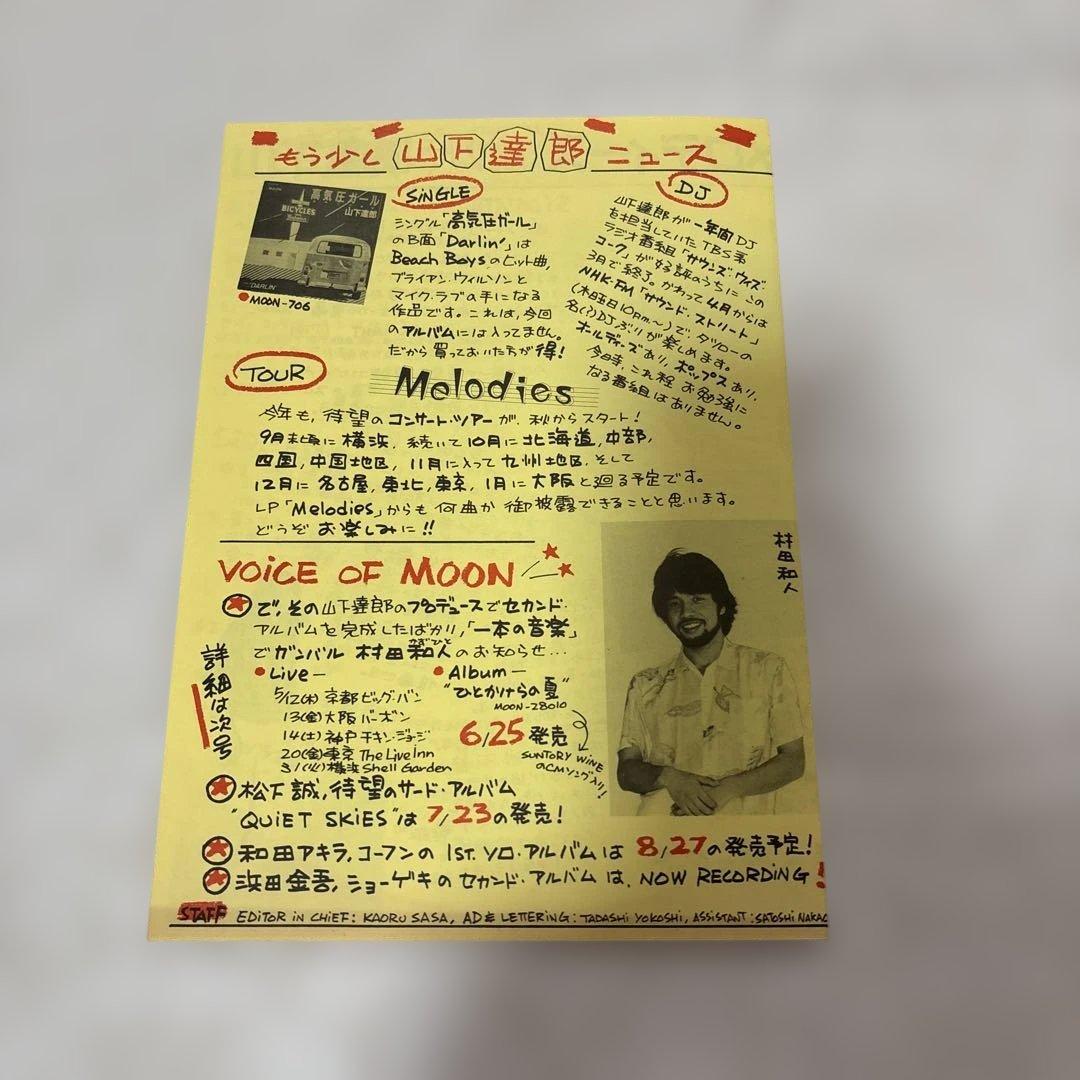 もう少し 山下達郎 ニュース
高気圧ガール
山下達郎
BICYCLES
DARLIN'
●MOON-706
SINGLE
シングル「高気圧ガール」
のB面「Darlin'」は
Beach Boysのヒット曲,
ブライアン・ウィルソンと
マイク・ラブの手になる
作品です。これは,今回
のアルバムには入ってません。
だから買っておいた方が得!
DJ
山下達郎が一年間DJ
を担当していたTBS系
ラジオ番組「サウンズ・ウィズ・
コーク」が好評のうちにこの
3月で終了。かわって4月からは
NHK-FM「サウンド・ストリート」
(木曜日10pm.〜)で,タツローの
名(?)DJぶりが楽しめます。
オールディーズあり,ポップスあり,
今日時,これ程お勉強に
なる番組はありません。
TOUR
Melodies
今年も,待望のコンサート・ツアーが,秋からスタート!
9月末頃に横浜,続いて10月に北海道,中部,
四国,中国地区,11月に入って九州地区,そして
12月に名古屋,東北,東京,1月に大阪と廻る予定です。
LP「Melodies」からも何曲か御披露できることと思います。
どうぞお楽しみに!!
VOICE OF MOON
★で,その山下達郎のプロデュースでセカンド・
アルバムを完成したばかり,「一本の音楽」
でガンバル村田和人かずひとのお知らせ…
詳細は次号
●Live—
5/12(木)京都ビッグ・バン
13(金)大阪バーボン
14(土)神戸チキン・ジョージ
20(金)東京The Live Inn
31(火)横浜Shell Garden
●Album—
"ひとかけらの夏"
MOON-28010
6/25発売
SUNTORY WINE
のCMソング入り!
村田和人
★松下誠,待望のサード・アルバム
"QUIET SKIES"は7/23の発売!
★和田アキラ,コーフンの1ST.ソロ・アルバムは8/27の発売予定!
★浜田金吾,ショーゲキのセカンド・アルバムは,NOW RECORDING!
STAFF EDITOR IN CHIEF: KAORU SASA, AD& LETTERING: TADASHI YOKOSHI, ASSISTANT: SATOSHI NAKAO